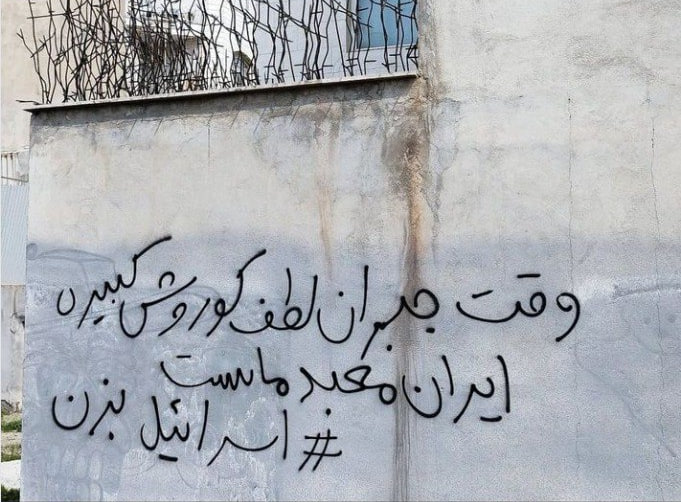 وقت جبران لطف کوروش کبیره
ایران معبد ماست
#اسرائیل بزن